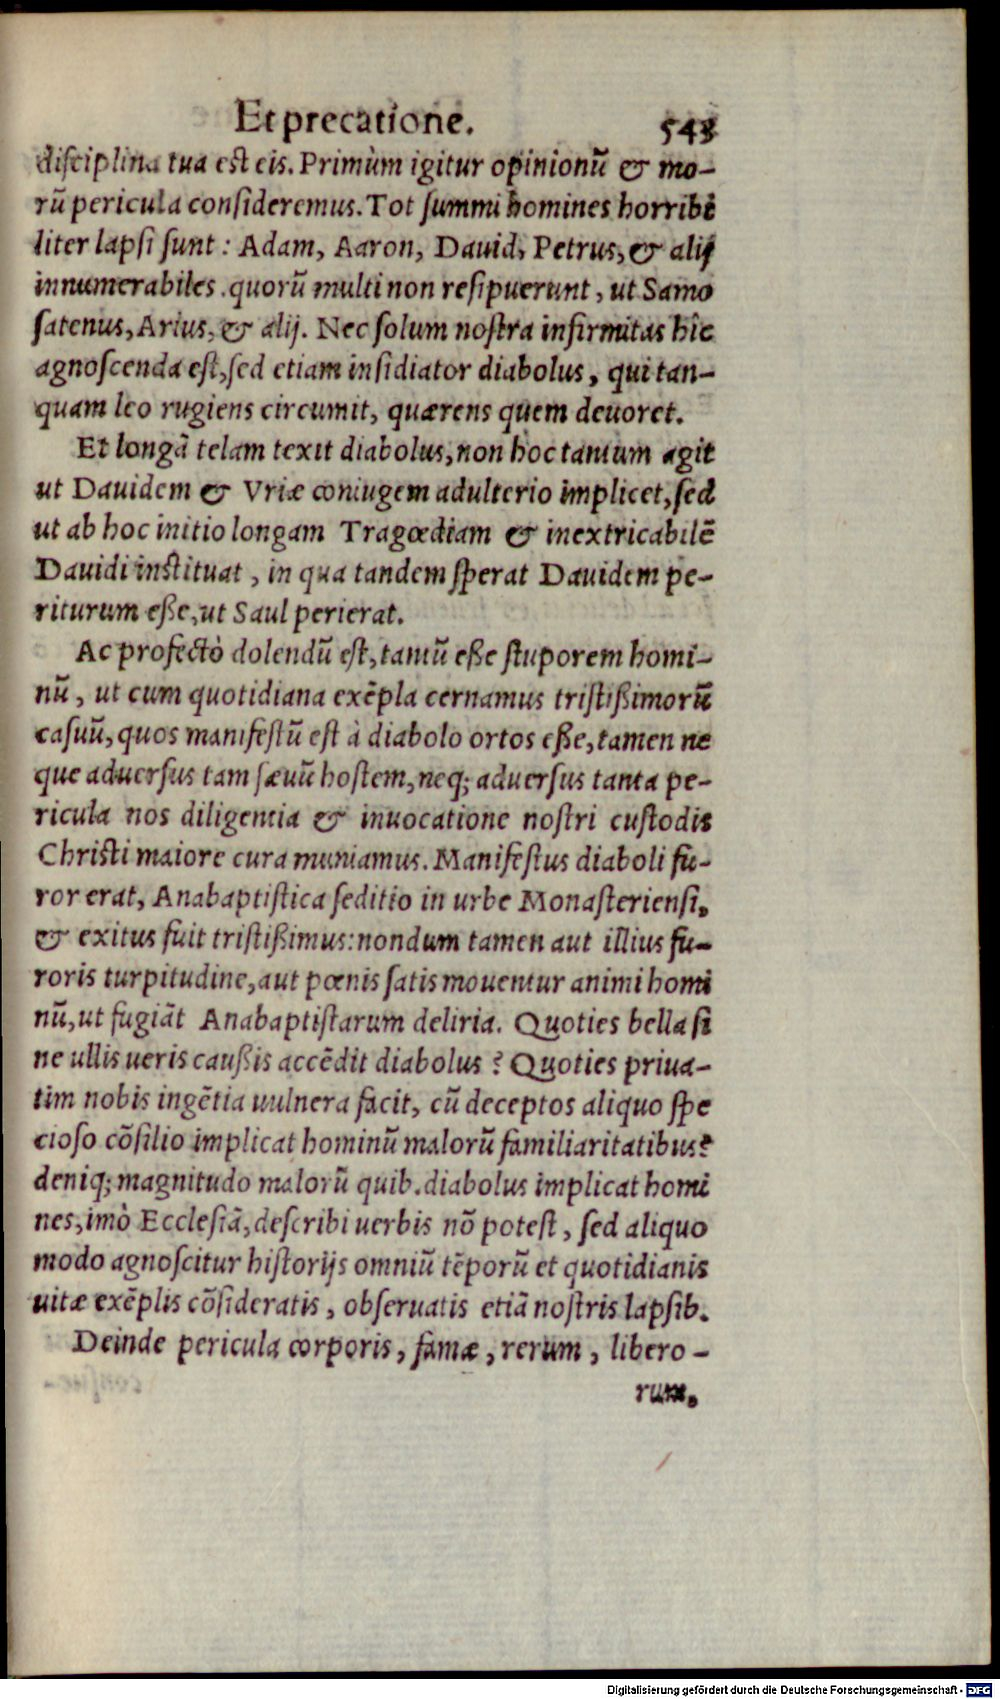 Et precatione. 543
disciplina tua est eis. Primùm igitur opinionũ & mo-
rũ pericula consideremus. Tot summi homines horribi
liter lapsi sunt: Adam, Aaron, Dauid, Petrus, & alij
innumerabiles. quorũ multi non resipuerunt, ut Samo
satenus, Arius, & alij. Nec solum nostra infirmitas hîc
agnoscenda est, sed etiam insidiator diabolus, qui tan-
quam leo rugiens circumit, quærens quem deuoret.
Et longã telam texit diabolus, non hoc tantum agit
ut Dauidem & Vriæ coniugem adulterio implicet, sed
ut ab hoc initio longam Tragœdiam & inextricabilẽ
Dauidi instituat, in qua tandem sperat Dauidem pe-
riturum eße, ut Saul perierat.
Ac profectò dolendũ est, tantũ eße stuporem homi-
nũ, ut cum quotidiana exẽpla cernamus tristißimorũ
casuũ, quos manifestũ est à diabolo ortos eße, tamen ne
que aduersus tam sæuũ hostem, neq; aduersus tanta pe-
ricula nos diligentia & inuocatione nostri custodis
Christi maiore cura muniamus. Manifestus diaboli fu-
ror erat, Anabaptistica seditio in urbe Monasteriensi,
& exitus fuit tristißimus: nondum tamen aut illius fu-
roris turpitudine, aut pœnis satis mouentur animi homi
nũ, ut fugiãt Anabaptistarum deliria. Quoties bella si
ne ullis ueris caußis accẽdit diabolus? Quoties priua-
tim nobis ingẽtia uulnera facit, cũ deceptos aliquo spe
cioso cõsilio implicat hominũ malorũ familiaritatibus?
deniq; magnitudo malorũ quib. diabolus implicat homi
nes, imò Ecclesiã, describi uerbis nõ potest, sed aliquo
modo agnoscitur historijs omniũ tẽporũ et quotidianis
uitæ exẽplis cõsideratis, obseruatis etiã nostris lapsib.
Deinde pericula corporis, famæ, rerum, libero-
rum.
Digitalisierung gefördert durch die Deutsche Forschungsgemeinschaft - DFG